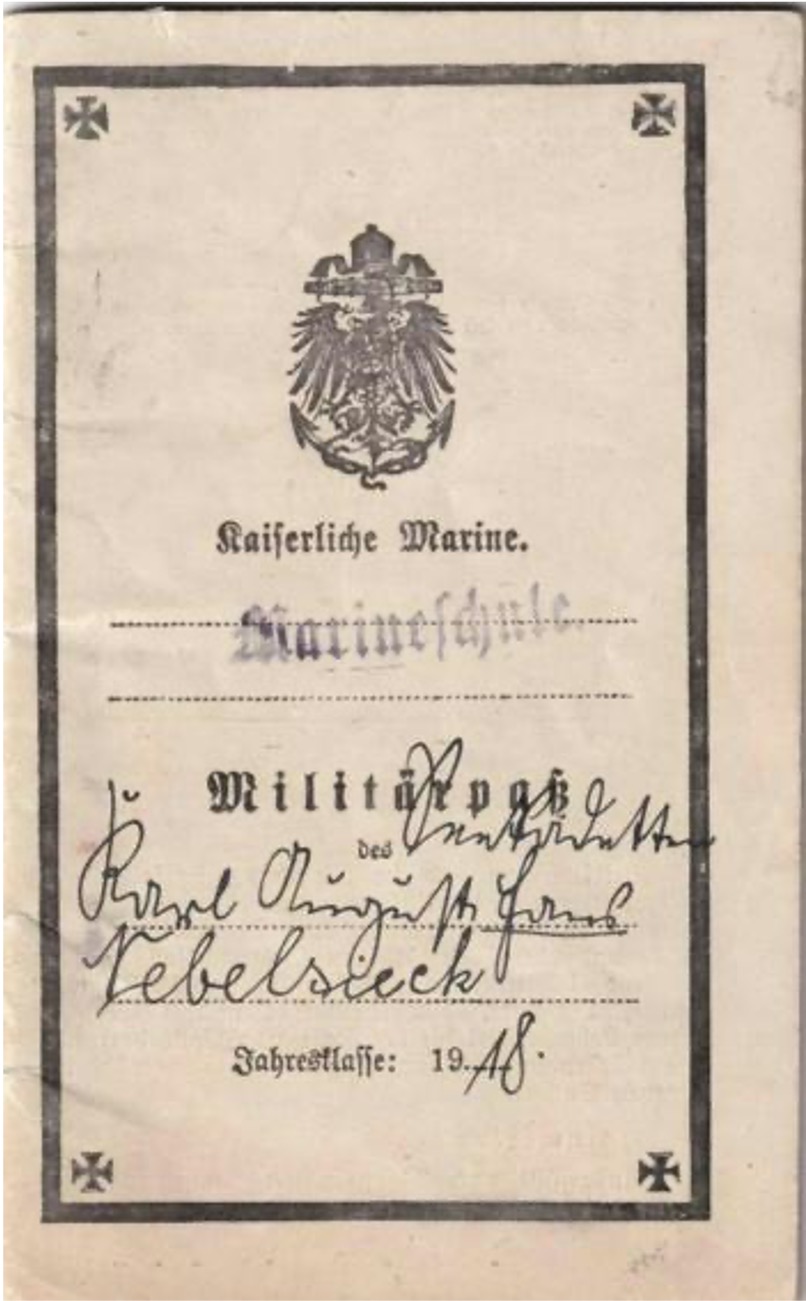 Kaiserliche Marine.
Marineschule.
Militärpaß
des Seekadetten
Karl August Hans
Nebelsieck
Jahresklasse: 1918.